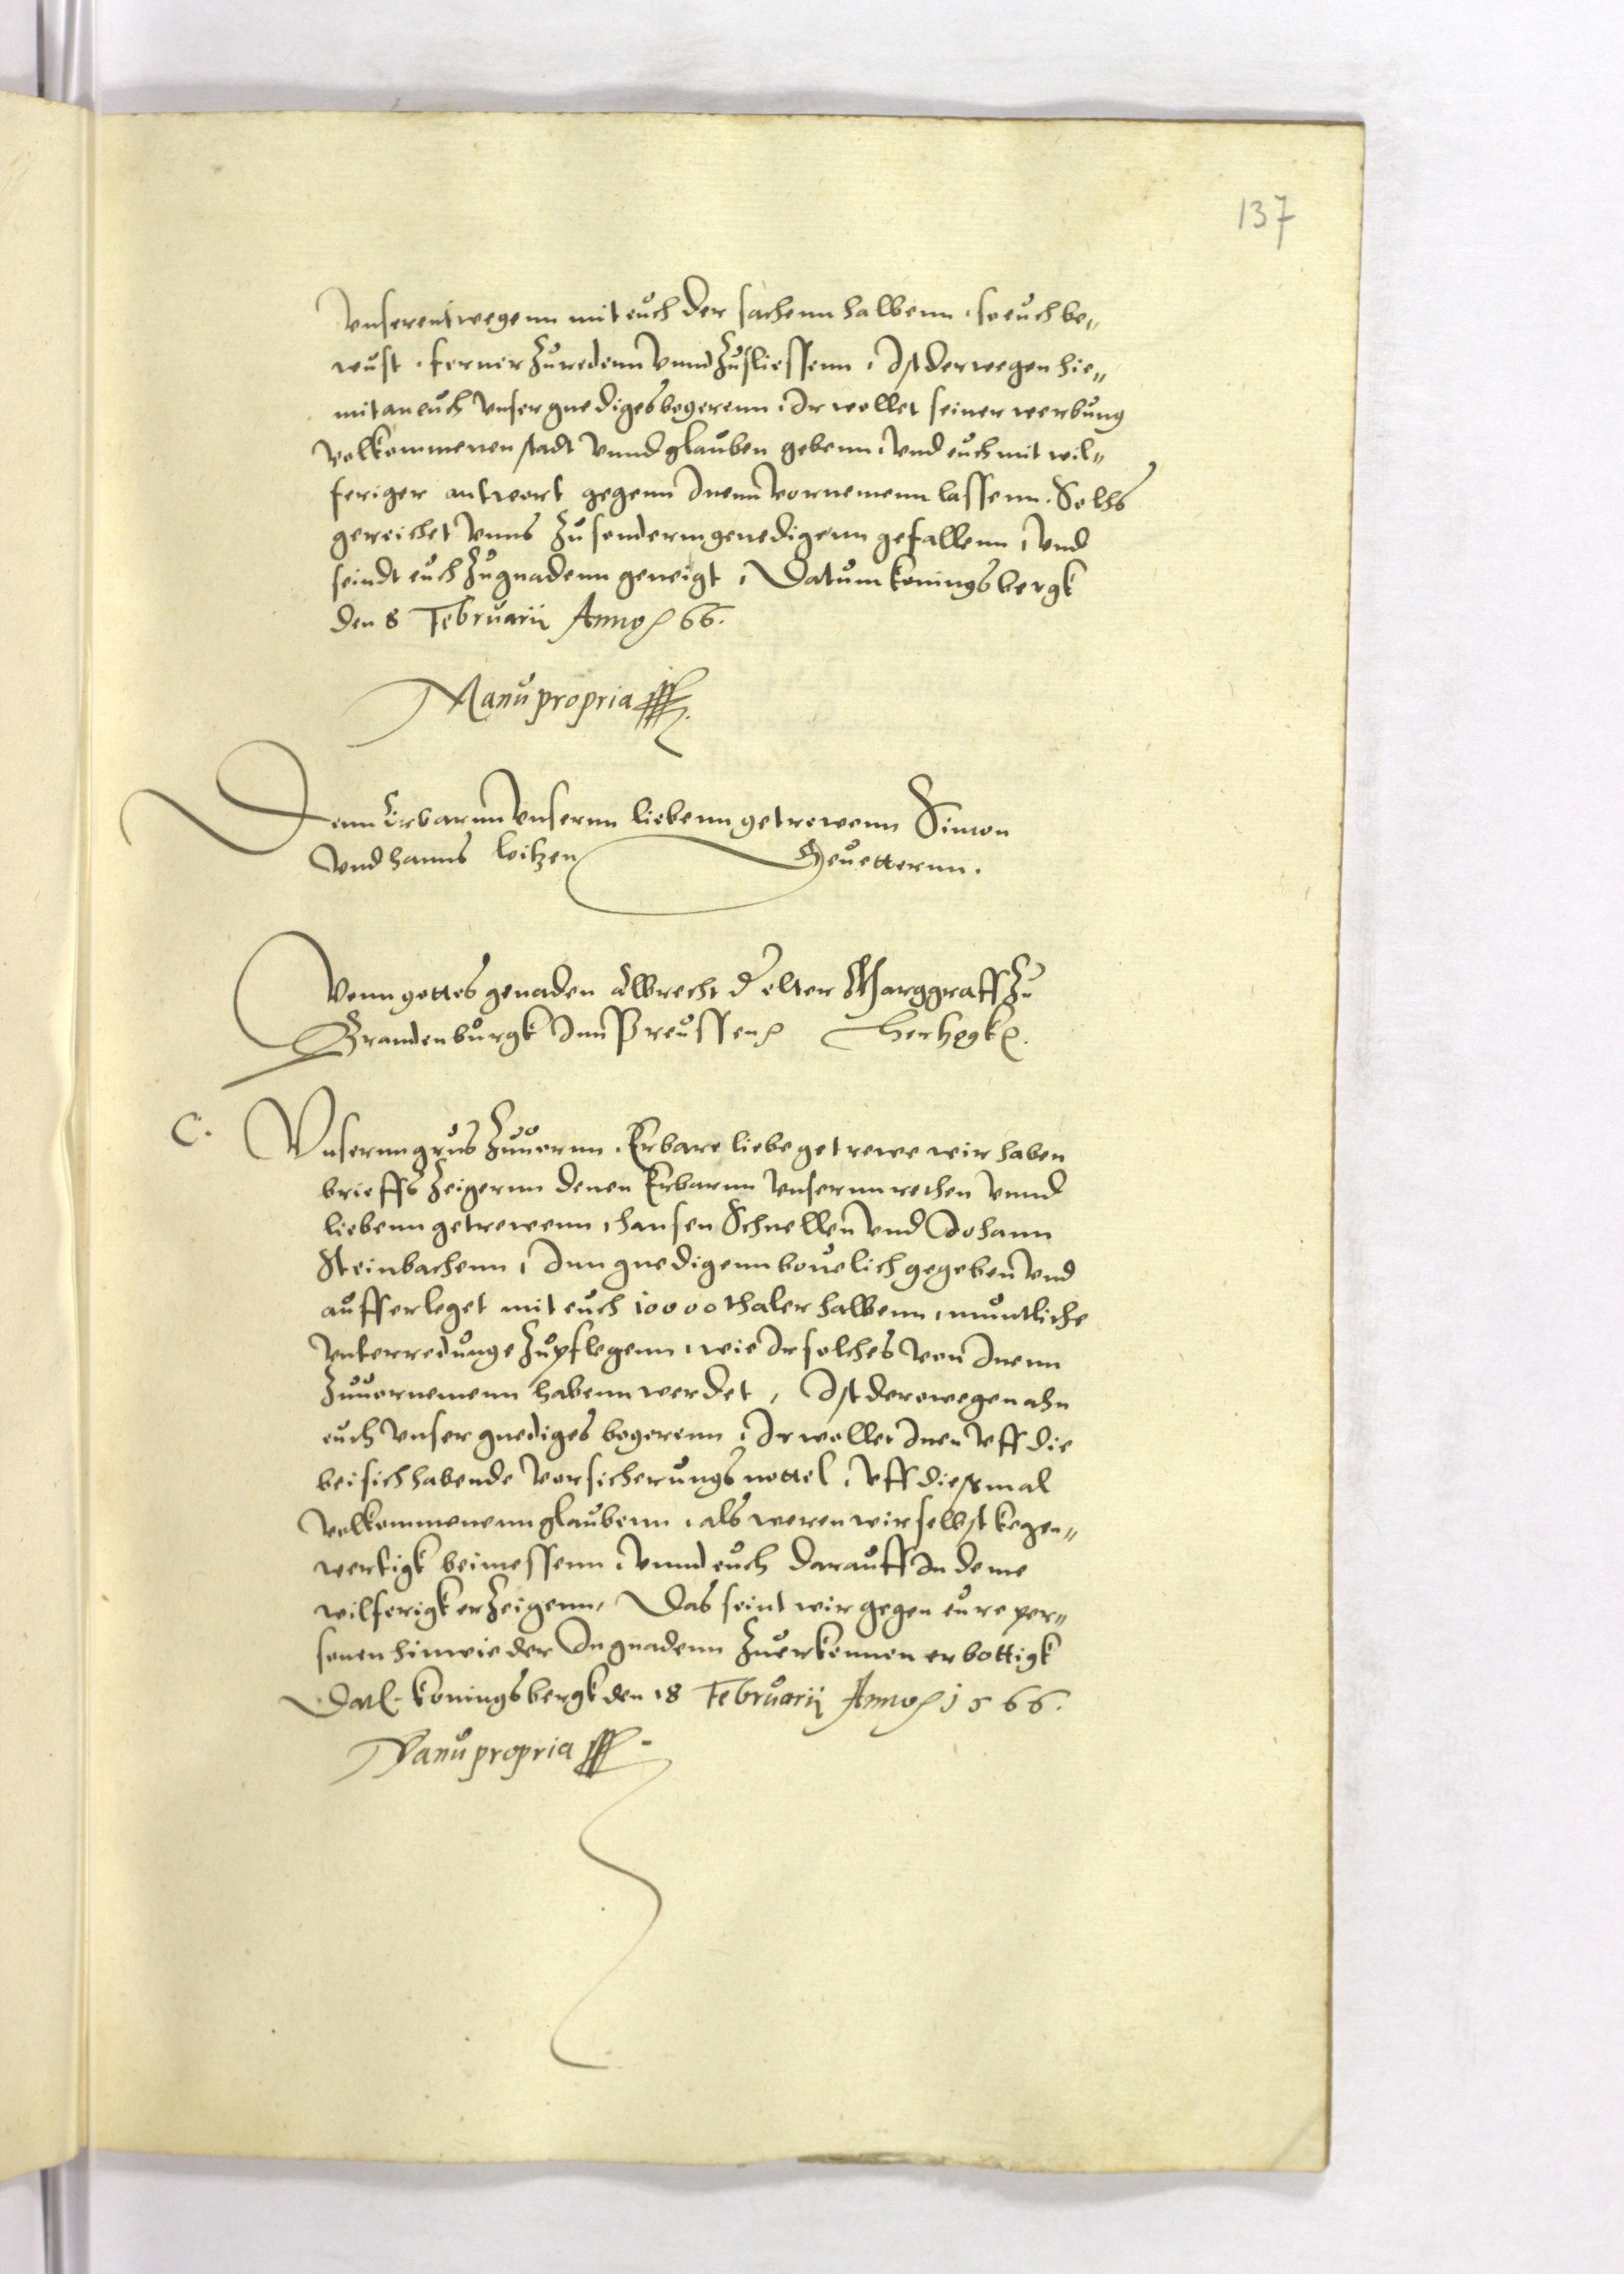 137
Vnserentwegenn mit euch der sachenn halbenn, so euch be„
wust, ferner Zuredenn Vnnd Zusliessenn, Ist derwegen hie„
mit an euch Vnser gnediges begerenn, Ir wollet seiner werbung
Volkommenen stadt Vnnd glauben gebenn, Vnd euch mit wil„
feriger antwort gegenn Inenn Vornemenn lassenn. Solchs
gereichet Vnns Zu sonderm genedigenn gefallenn, Vnd
seindt euch Zu gnadenn geneigt, Datum koningsbergk
den 8 Februarij Anno 66.
Manu propria
Denn Erbarnn Vnsernn liebenn getrewenn Simon
Vnd hanns loitzen Geuetternn.
Vonn gottes genaden Albrecht d elter Marggraff Zu
Brandenburgk Inn Preussen Hertzogk.
C. Vnsernn grus Zuuornn. Erbare liebe getrewe wir haben
brieffs Zeigernn denen Erbarnn Vnsernn rethen Vnnd
liebenn getrewenn, hansen Schnellen Vnd Johann
Steinbachenn, Inn gnedigenn beuelich gegeben Vnd
aufferleget mit euch 10000 thaler halbenn, muntliche
Vnterredunge Zu pflegenn, wie Ir solches von Inenn
Zuuornemenn habenn werdet, Ist derowegen ahn
euch Vnser gnediges begerenn, Ir wollet Inen Vff die
bei sich habende Vorsicherungs nottel, Vff diesmal
Volkommenenn glaubenn, als weren wir selbst kegen„
wertigk beimessenn, Vnnd euch darauff In deme
wilferigk erZeigenn, Das seint wir gegen eure per„
sonen hinwieder In gnadenn Zuerkennen erbottigk
Dat. konings bergk den 18 Februarij Anno 1566.
Manu propria